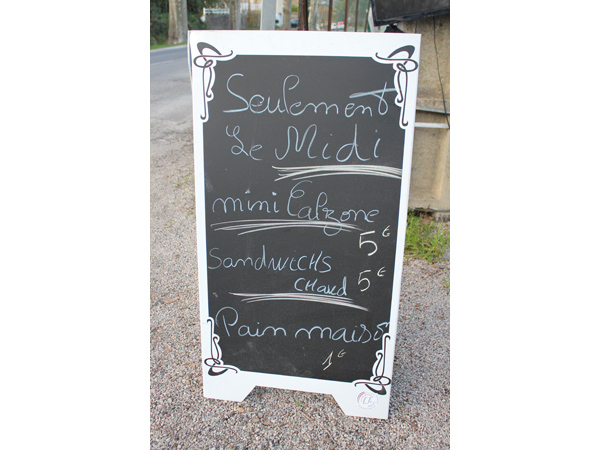 Seulement
Le Midi
mini Calzone
5€
SANDWICHS
CHAUD 5€
Pain maison
1€